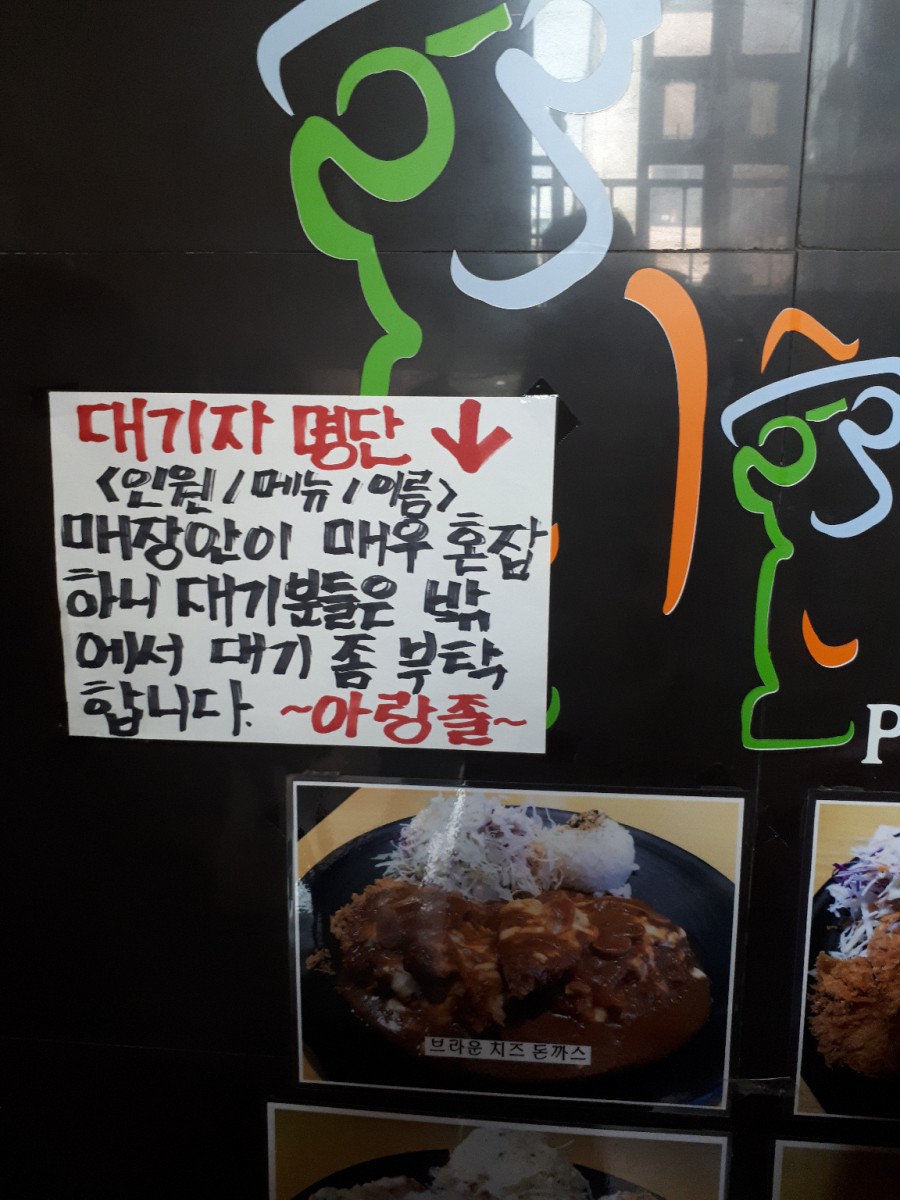 대기자 명단 ↓
<인원 / 메뉴 / 이름>
매장안이 매우 혼잡
하니 대기분들은 밖
에서 대기 좀 부탁
합니다. ~아랑졸~
P
브라운 치즈 돈까스